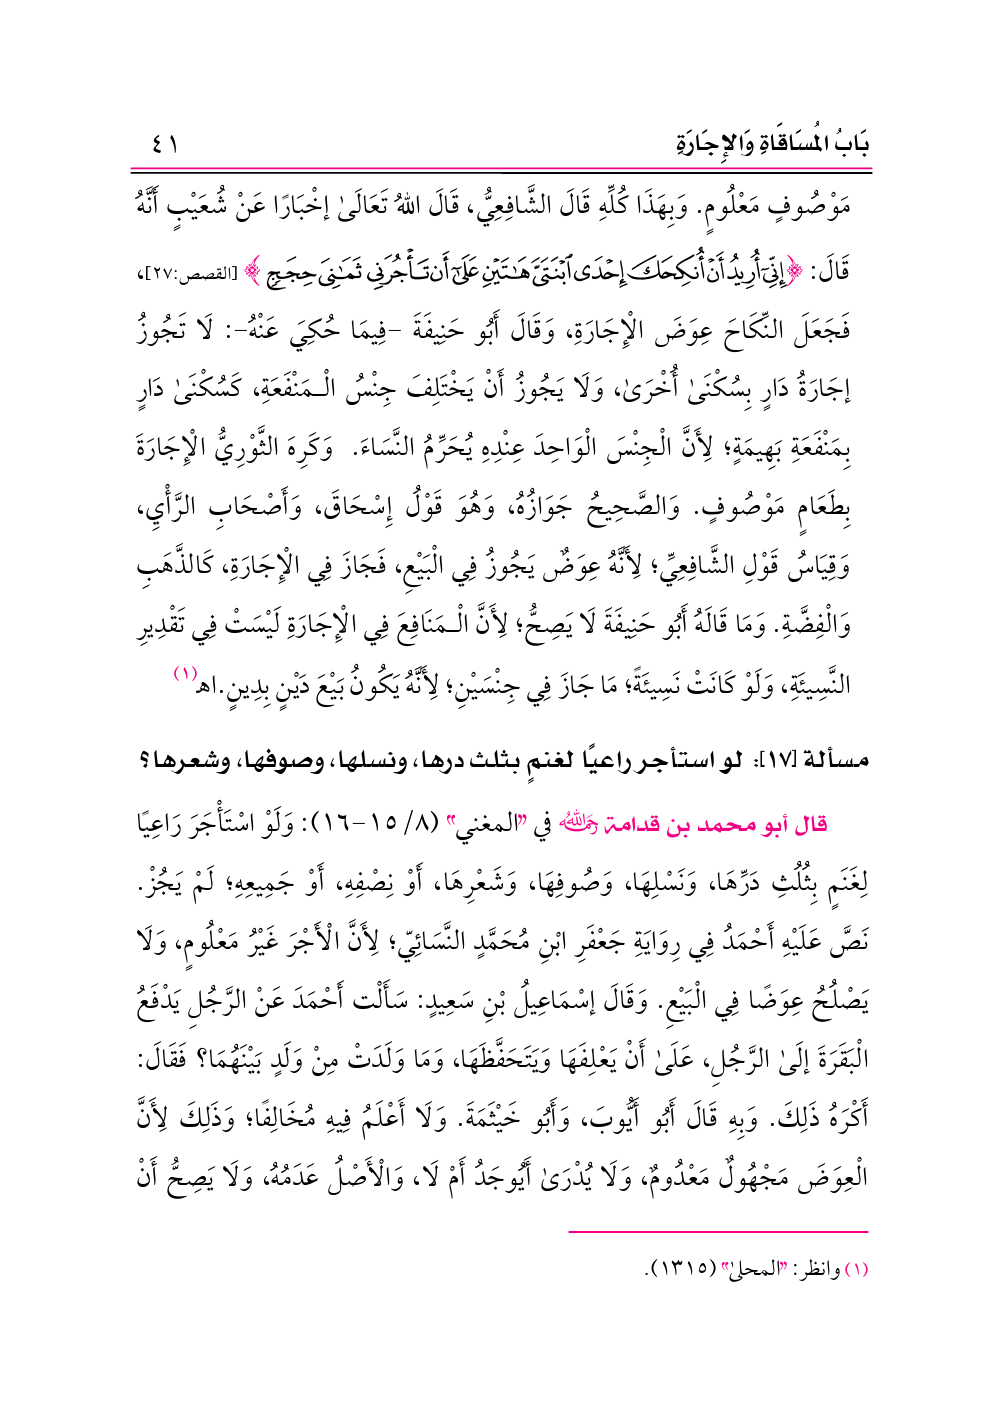 بَابُ المُسَاقَاةِ وَالإِجَارَةِ ٤١
مَوْصُوفٍ مَعْلُومٍ. وَبِهَذَا كُلِّهِ قَالَ الشَّافِعِيُّ، قَالَ اللهُ تَعَالَىٰ إخْبَارًا عَنْ شُعَيْبٍ أَنَّهُ
قَالَ: ﴿إِنِّيٓ أُرِيدُ أَنْ أُنكِحَكَ إِحْدَى ٱبْنَتَيَّ هَٰتَيْنِ عَلَىٰٓ أَن تَأْجُرَنِي ثَمَٰنِيَ حِجَجٍ﴾ [القصص:٢٧]،
فَجَعَلَ النِّكَاحَ عِوَضَ الْإِجَارَةِ، وَقَالَ أَبُو حَنِيفَةَ –فِيمَا حُكِيَ عَنْهُ–: لَا تَجُوزُ
إجَارَةُ دَارٍ بِسُكْنَىٰ أُخْرَىٰ، وَلَا يَجُوزُ أَنْ يَخْتَلِفَ جِنْسُ الْـمَنْفَعَةِ، كَسُكْنَىٰ دَارٍ
بِمَنْفَعَةِ بَهِيمَةٍ؛ لِأَنَّ الْجِنْسَ الْوَاحِدَ عِنْدِهِ يُحَرِّمُ النَّسَاءَ. وَكَرِهَ الثَّوْرِيُّ الْإِجَارَةَ
بِطَعَامٍ مَوْصُوفٍ. وَالصَّحِيحُ جَوَازُهُ، وَهُوَ قَوْلُ إسْحَاقَ، وَأَصْحَابِ الرَّأْيِ،
وَقِيَاسُ قَوْلِ الشَّافِعِيِّ؛ لِأَنَّهُ عِوَضٌ يَجُوزُ فِي الْبَيْعِ، فَجَازَ فِي الْإِجَارَةِ، كَالذَّهَبِ
وَالْفِضَّةِ. وَمَا قَالَهُ أَبُو حَنِيفَةَ لَا يَصِحُّ؛ لِأَنَّ الْـمَنَافِعَ فِي الْإِجَارَةِ لَيْسَتْ فِي تَقْدِيرِ
النَّسِيئَةِ، وَلَوْ كَانَتْ نَسِيئَةً؛ مَا جَازَ فِي جِنْسَيْنِ؛ لِأَنَّهُ يَكُونُ بَيْعَ دَيْنٍ بِدِينٍ.اﻫ(١)
مسألة [١٧]: لو استأجر راعيًا لغنمٍ بثلث درها، ونسلها، وصوفها، وشعرها؟
قال أبو محمد بن قدامة رحمه الله في "المغني" (٨/ ١٥–١٦): وَلَوْ اسْتَأْجَرَ رَاعِيًا
لِغَنَمٍ بِثُلُثِ دَرِّهَا، وَنَسْلِهَا، وَصُوفِهَا، وَشَعْرِهَا، أَوْ نِصْفِهِ، أَوْ جَمِيعِهِ؛ لَمْ يَجُزْ.
نَصَّ عَلَيْهِ أَحْمَدُ فِي رِوَايَةِ جَعْفَرِ ابْنِ مُحَمَّدٍ النَّسَائِيّ؛ لِأَنَّ الْأَجْرَ غَيْرُ مَعْلُومٍ، وَلَا
يَصْلُحُ عِوَضًا فِي الْبَيْعِ. وَقَالَ إسْمَاعِيلُ بْنِ سَعِيدٍ: سَأَلْت أَحْمَدَ عَنْ الرَّجُلِ يَدْفَعُ
الْبَقَرَةَ إلَىٰ الرَّجُلِ، عَلَىٰ أَنْ يَعْلِفَهَا وَيَتَحَفَّظَهَا، وَمَا وَلَدَتْ مِنْ وَلَدٍ بَيْنَهُمَا؟ فَقَالَ:
أَكْرَهُ ذَلِكَ. وَبِهِ قَالَ أَبُو أَيُّوبَ، وَأَبُو خَيْثَمَةَ. وَلَا أَعْلَمُ فِيهِ مُخَالِفًا؛ وَذَلِكَ لِأَنَّ
الْعِوَضَ مَجْهُولٌ مَعْدُومٌ، وَلَا يُدْرَىٰ أَيُوجَدُ أَمْ لَا، وَالْأَصْلُ عَدَمُهُ، وَلَا يَصِحُّ أَنْ
(١) وانظر: "المحلىٰ" (١٣١٥).